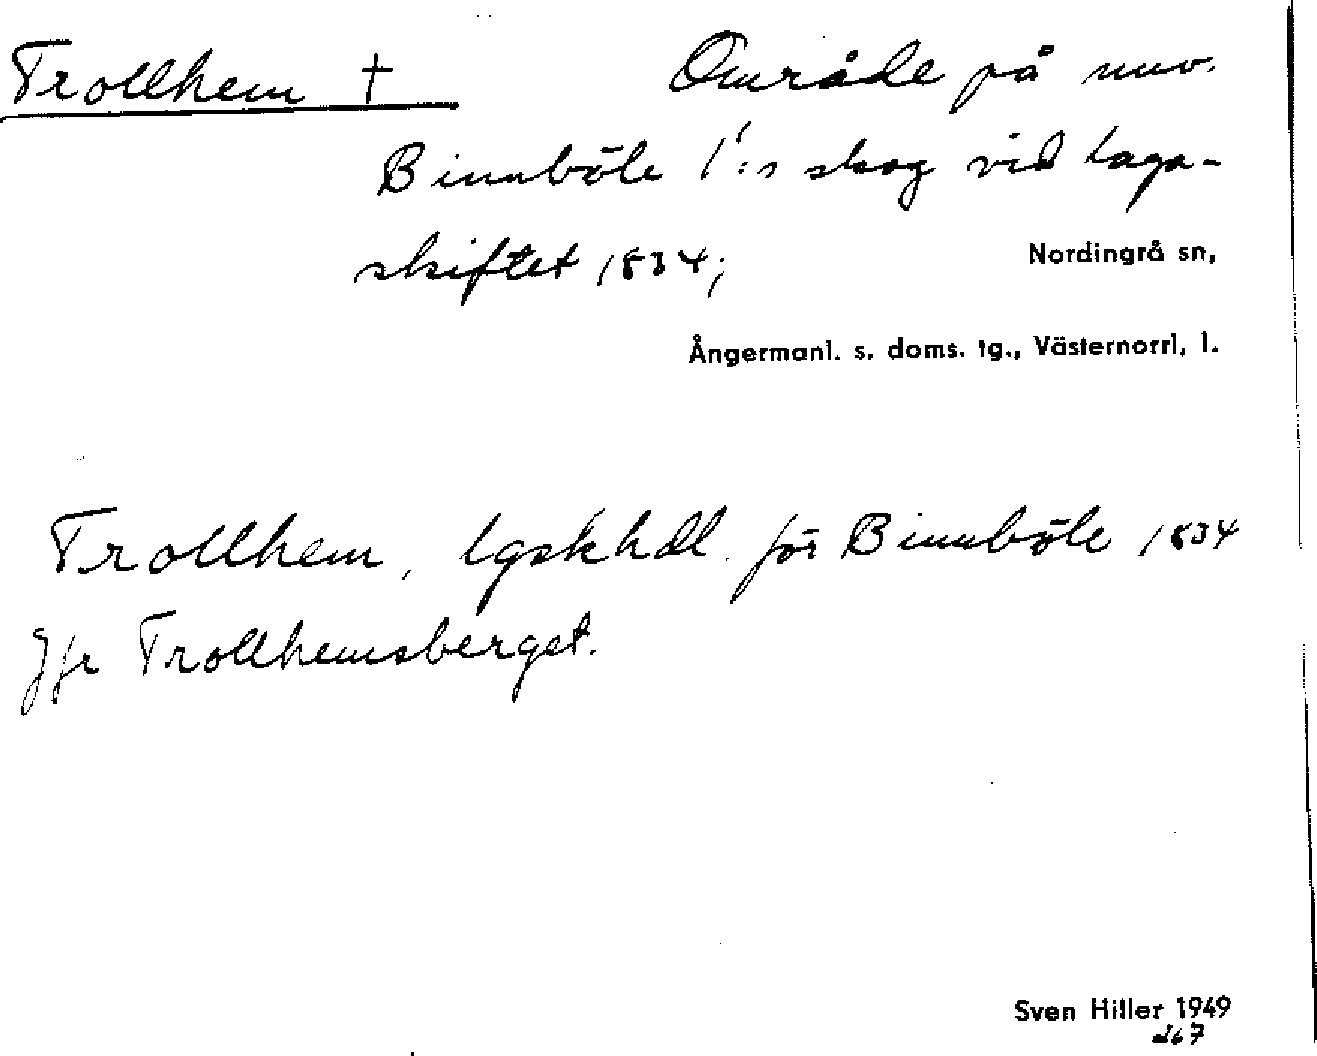 Trollhem † Område på nuv.
Binnböle 1:s skog vid laga-
skiftet 1834;
Nordingrå sn,
Ångermanl. s. doms. tg., Västernorrl, l.
Trollhem, lgskhdl. för Binnböle 1834
Jfr Trollhemsberget.
Sven Hiller 1949